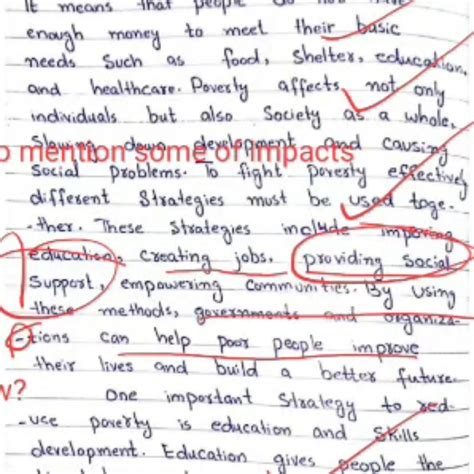 It means that people do not have
enough money to meet their basic
needs such as food, Shelter, education,
and healthcare. Poverty affects not only
individuals but also Society as a whole,
Slowing down development and causing
o mention some of impacts
Social problems. To fight poverty effectively
different Strategies must be used toge-
-ther. These Strategies include imporing
education, creating jobs, providing Social
Support, empowering Communities. By using
these methods, governments and organiza-
-tions can help poor people improve
their lives and build a better future.
w?
One important Strategy to red-
-uce poverty is education and Skills
development. Education gives people the